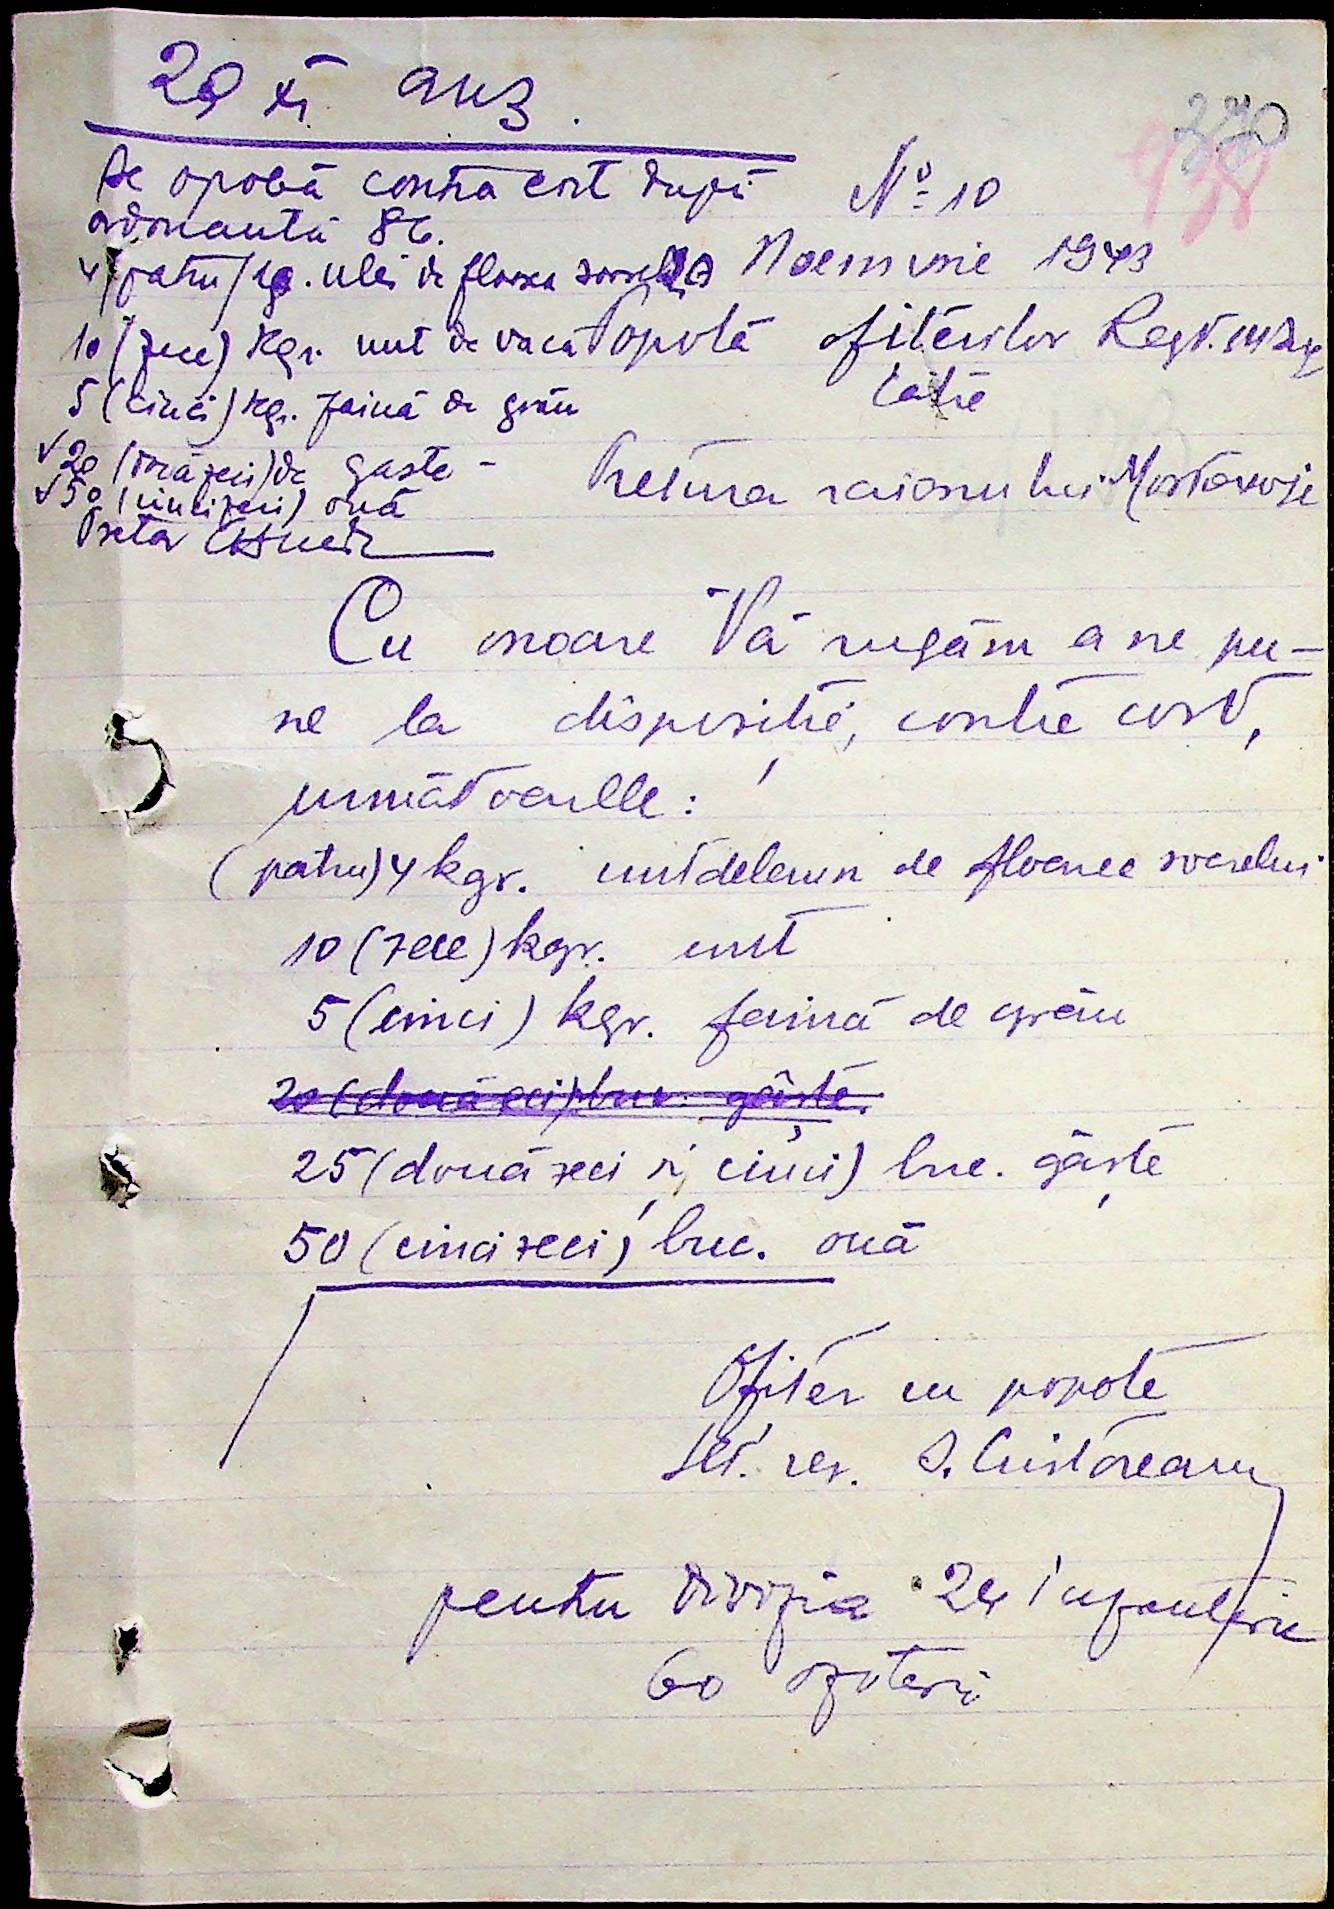 29 XI 943.
370
938
Se aprobă contra cost după
ordonanta 86.
4 (patru) kg. ulei de floarea soarelui
10 (zece) kgr. unt de vacă
5 (cinci) kgr. faină de grâu
√ 20 (douăzeci) de gaste -
√ 50 (cincizeci) ouă
Pretor
No 10
29 Noemvrie 1943
Popotă ofiterilor Regt.
Catre
Pretura raionului Mostovoje
Cu onoare Vă rugăm a ne pu-
ne la dispoziție, contra cost,
următoarele:
(patru) 4 kgr. untdelemn de floarea soarelui
10 (zece) kgr. unt
5 (cinci) kgr. faină de grâu
20 (două zeci) buc. gâște.
25 (două zeci și cinci) buc. gâște
50 (cinci zeci) buc. ouă
Ofițer cu popota
Slt. rez. D. Cristoreanu
pentru Divizia 24 Infanterie
60 ofiteri